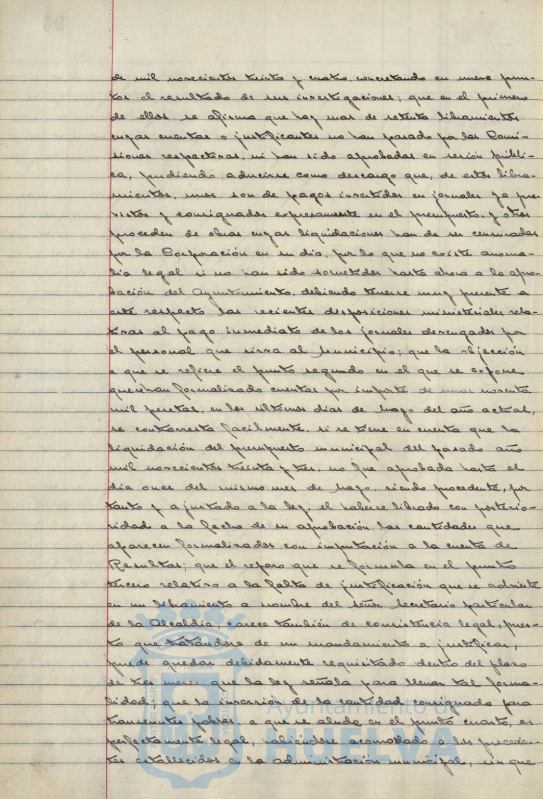 de mil novecientos treinta y cuatro, concretando en nueve pun-
tos el resultado de sus investigaciones; que en el primero
de ellos se afirma que hay mas de setenta libramientos
cuyas cuentas o justificantes no han pasado por las Comi-
siones respectivas, ni han sido aprobadas en sesión públi-
ca, pudiendo aducirse como descargo que, de estos libra-
mientos, unos son de pagos invertidos en jornales ya pre-
vistos y consignados expresamente en el presupuesto, y otros
proceden de obras cuyas liquidaciones han de ser censuradas
por la Corporación en su dia, por lo que no existe anoma-
lia legal si no han sido sometidas hasta ahora a la apro-
bación del Ayuntamiento, debiendo tenerse muy presente a
este respecto las recientes disposiciones ministeriales rela-
tivas al pago inmediato de los jornales devengados por
el personal que sirva al Municipio; que la objección
a que se refiere el punto segundo en el que se expone
que se han formalizado cuentas por importe de unas noventa
mil pesetas, en los últimos dias de Mayo del año actual,
se contrarresta facilmente, si se tiene en cuenta que la
liquidación del presupuesto municipal del pasado año
mil novecientos treinta y tres, no fue aprobada hasta el
dia once del mismo mes de Mayo, siendo procedente, por
tanto y ajustado a la ley, el haberse librado con posterio-
ridad a la fecha de su aprobación las cantidades que
aparecen formalizadas con imputación a la cuenta de
Resultas; que el reparo que se formula en el punto
tercero relativo a la falta de justificación que se advierte
en un libramiento a nombre del señor Secretario particular
de la Alcaldia, carece también de consistencia legal, pues-
to que tratándose de un mandamiento a justificar,
puede quedar debidamente requisitado dentro del plazo
de tres meses que la ley señala para llenar tal forma-
lidad; que la inversión de la cantidad consignada para
transeuntes pobres a que se alude en el punto cuarto, es
perfectamente legal, habiéndose acomodado a los preceden-
tes establecidos en la administración municipal, sin que
Ayuntamiento de
HUELVA